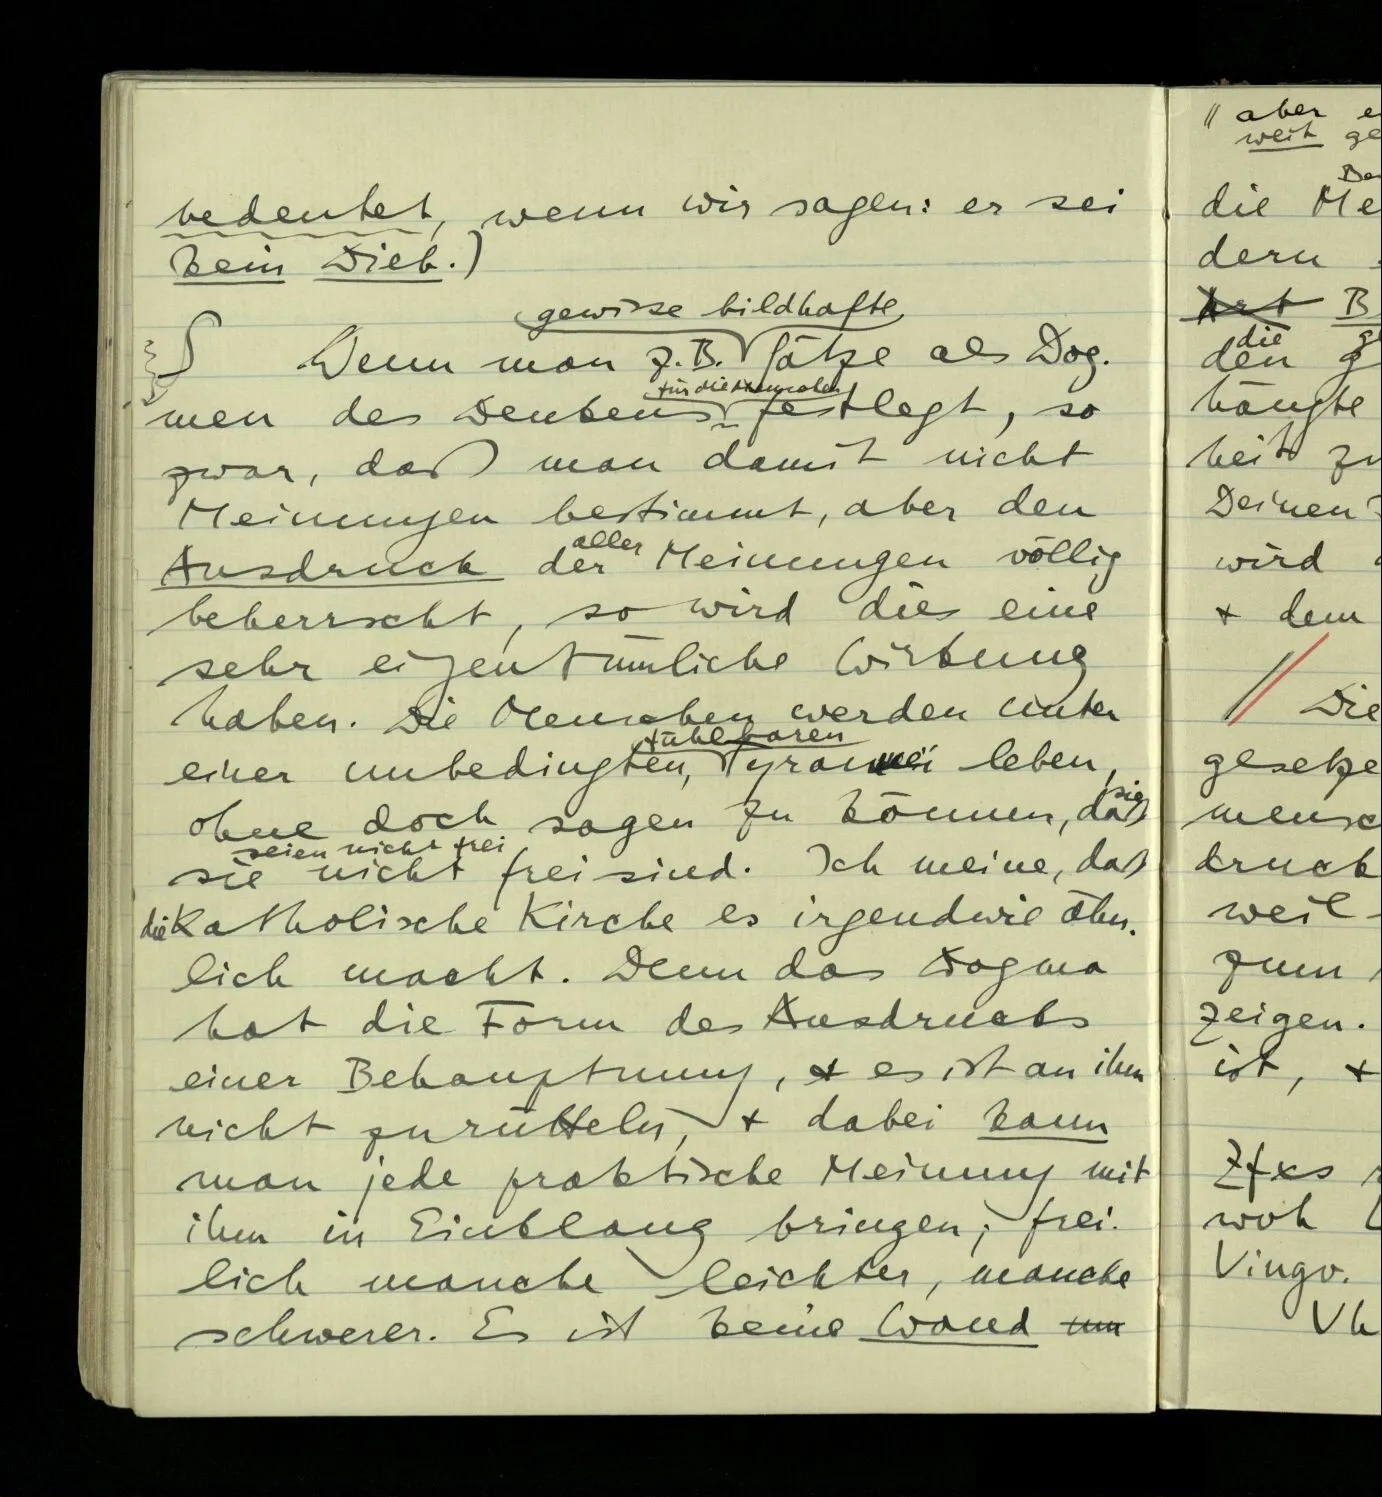 bedeutet, wenn wir sagen: er sei
kein Dieb.)
gewisse bildhafte
∫ Wenn man z.B. Sätze als Dog-
für die Menschen
men des Denkens festlegt, so
zwar, daß man damit nicht
Meinungen bestimmt, aber den
aller
Ausdruck der Meinungen völlig
beherrscht, so wird dies eine
sehr eigentümliche Wirkung
haben. Die Menschen werden unter
fühlbaren
einer unbedingten, Tyrannei leben,
sie
ohne doch sagen zu können, daß
seien nicht frei
sie nicht frei sind. Ich meine, daß
die Katholische Kirche es irgendwie ähn-
lich macht. Denn das Dogma
hat die Form des Ausdrucks
einer Behauptung, & es ist an ihm
nicht zu rütteln, & dabei kann
man jede praktische Meinung mit
ihm in Einklang bringen; frei-
lich manche leichter, manche
schwerer. Es ist keine Wand um
// aber
weit ge
die Me
dern
Art B
die
den g
hängte
heit zu
Deinen
wird
& dem
// Die
gesetze
mensc
druck
weil
zum
zeigen.
ist, &
Zfxs
woh
Vingv.
Vh